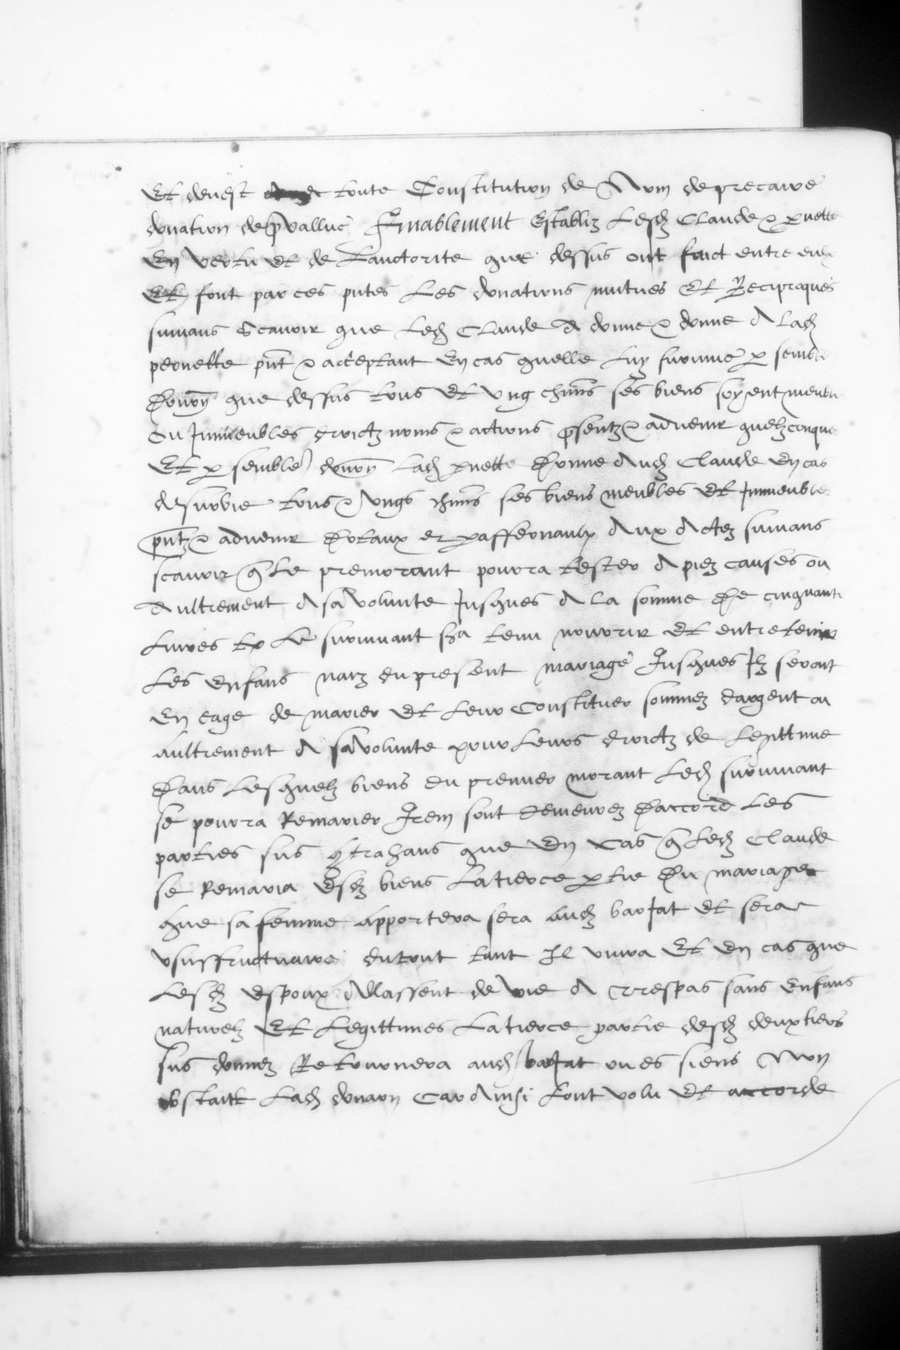 Et devest toute Constitution de Nom de precaire
donation de pvalluc Finablement Establiz Lesd Claude & pnette
En vertu Et de Lauctorite que dessus ont faict entre eulx
Et font par ces pntes Les donations mutues Et Reciproques
suivans Scavoir que Led Claude A donne & donne A lad
peonette pnt & acceptant En cas quelle luy survive p semble
donon que dessus tous Et ung chuns ses biens soyent meubles
Ou Immeubles droictz noms & actions psentz & advenir quelzconque
Et p semble donon Lad pnette Donne Aud Claude En cas
de survie tous & Ungs chuns ses biens meubles Et Immeubles
pntz & advenir Dotaux et paffernaulx Aux Actez suivans
scavoir q Le premorant pourra tester A piez causes ou
Aultrement A sa volunte Jusques A la somme De cinquante
Livres tz Le survivant sra tenu nourrir Et entretenir
Les Enfans naiz du present mariage Jusques Ilz seront
En eage de marier Et Leur Constituer sommez dargent ou
Aultrement A sa volunte pour Leurs droictz de Legittime
Dans Lesquelz biens du premier morant Led survivant
se pourra Remarier Item sont demeurez Daccord Les
parties sus qtrahans que En Cas q Led Claude
se Remaria Esd biens La tierce ptie Du mariage
que sa femme Apportera sera Aud barjat Et sera
Usuffructuaire du tout tant Il vivra Et En cas que
Lesd Espoux Allassent de vie A Trespas sans Enfans
naturelz Et Legittimes La tierce partie desd deux tiers
sus donnez Retournera aud barjat ou es siens Non
obstant Lad donaon Car Ainsi Lont volu Et accorde